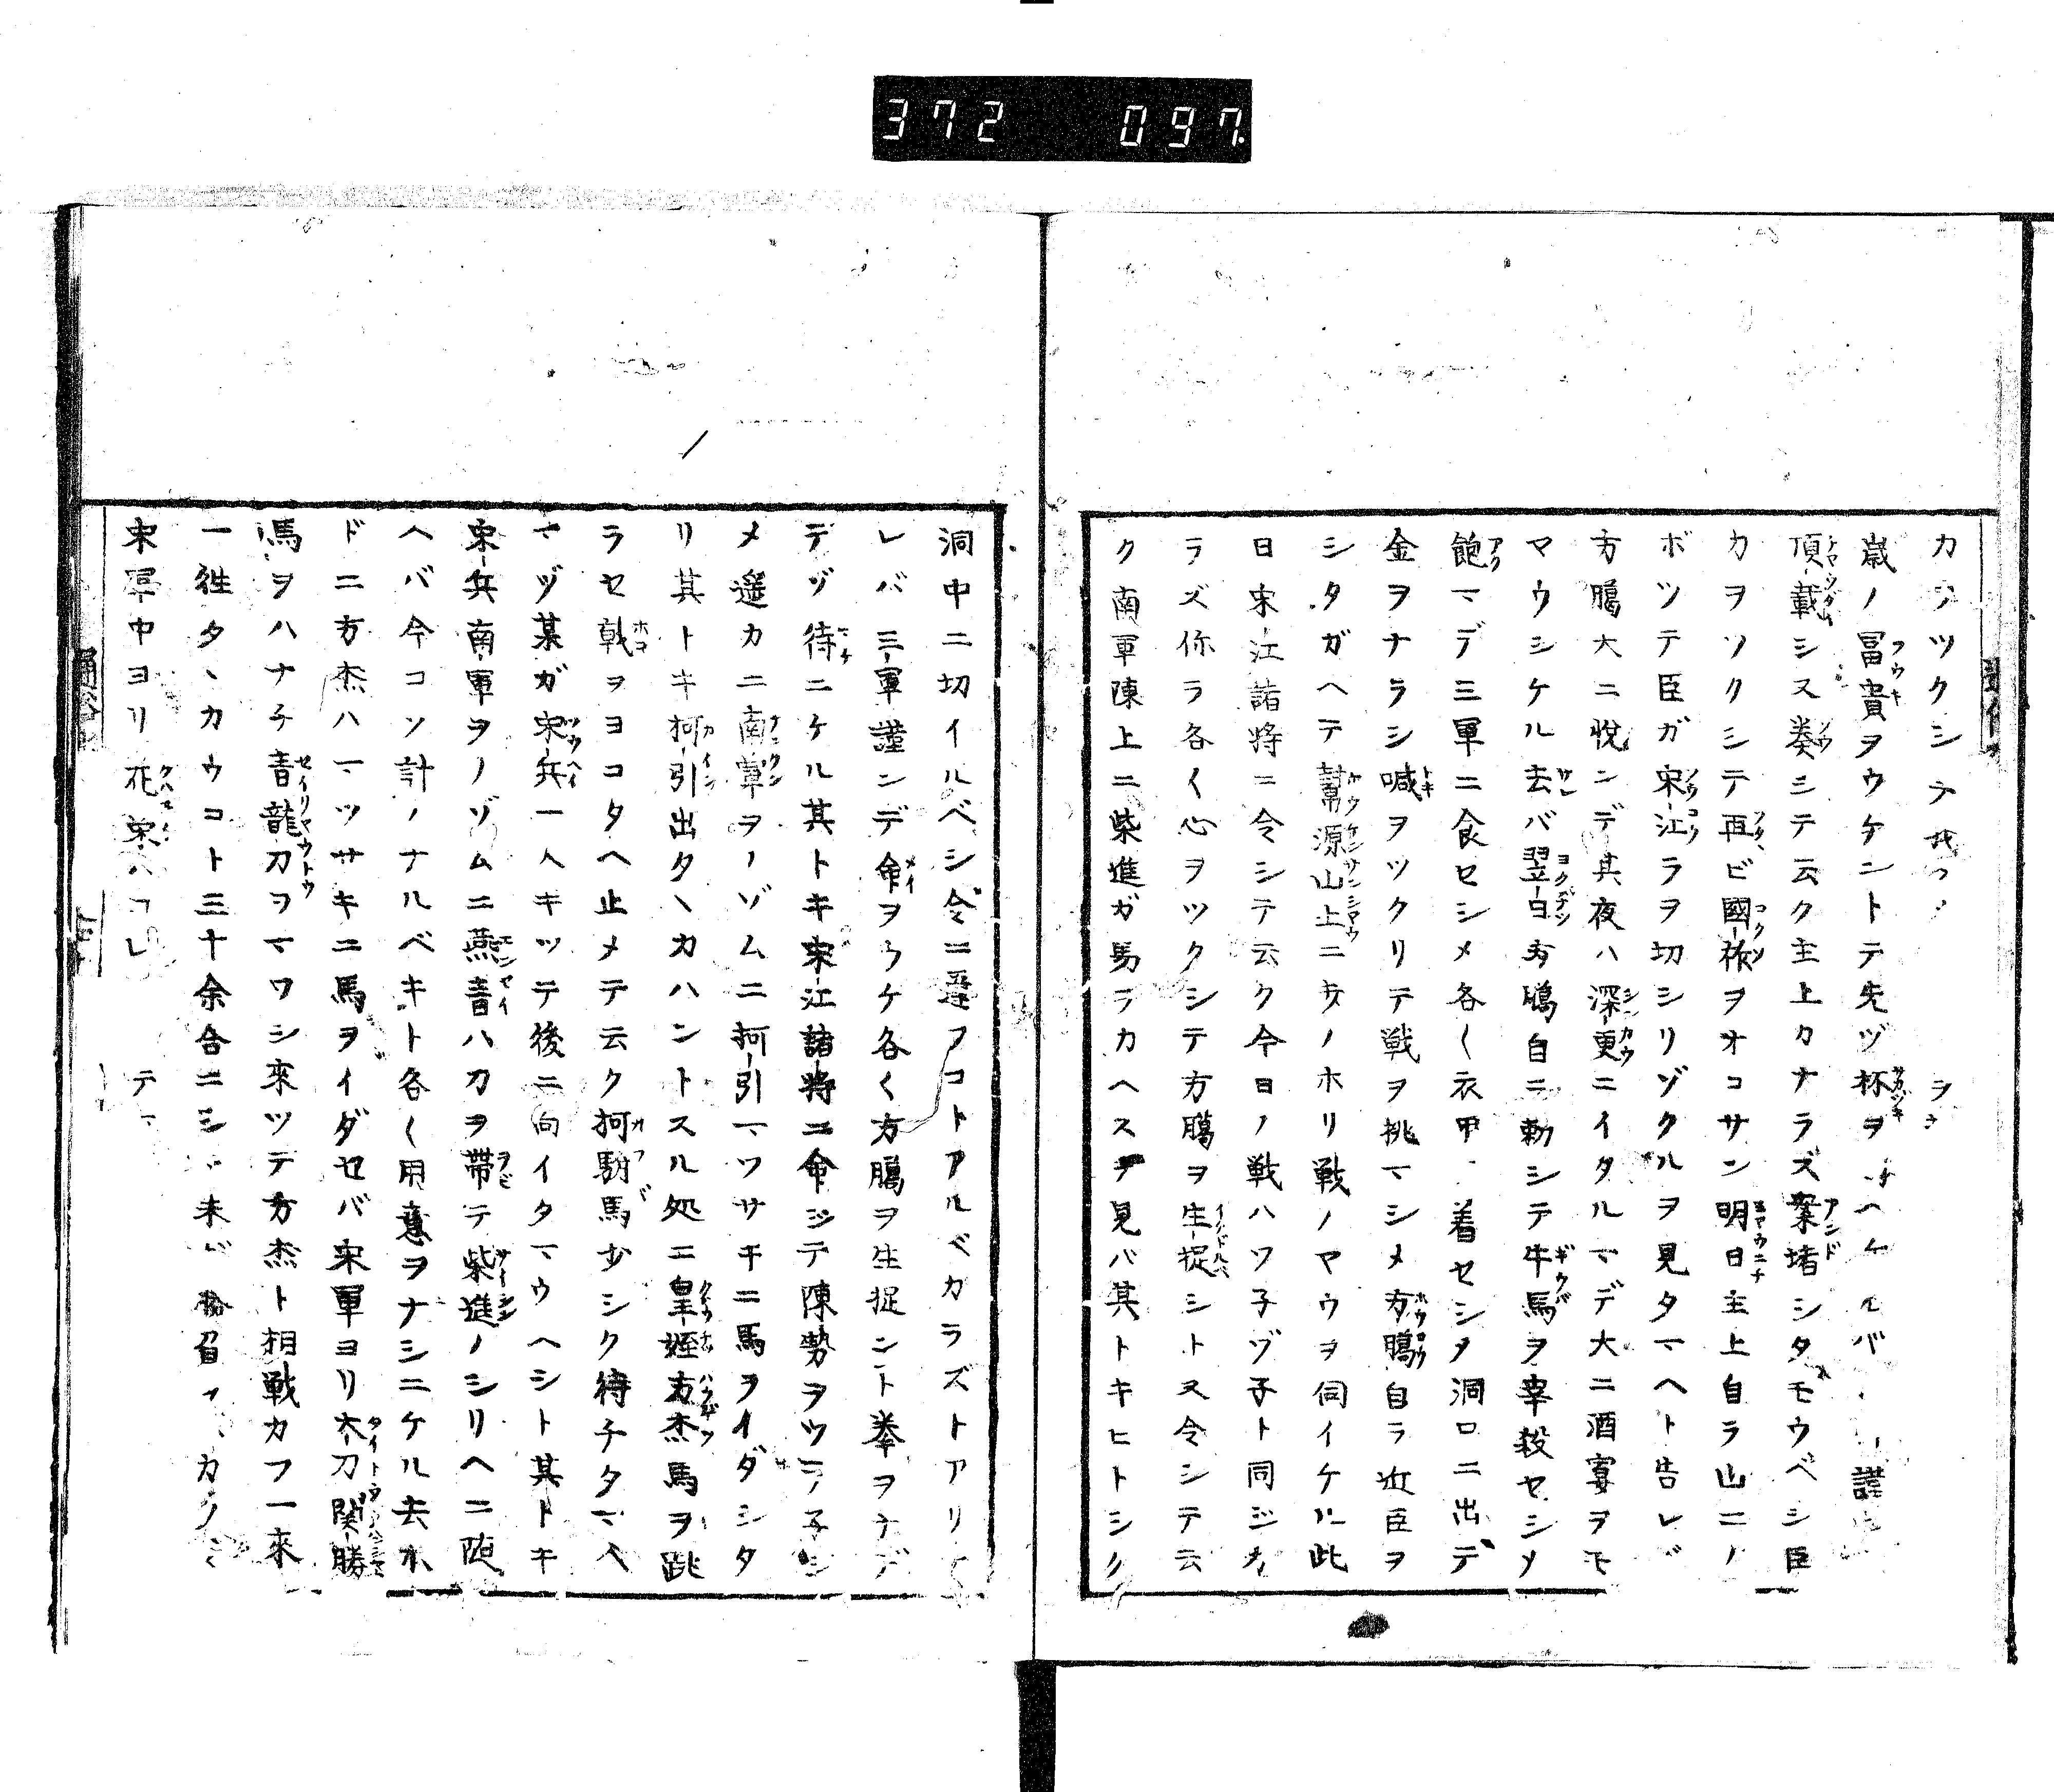 372 097
カツクシテ
歳ノ冨貴ヲウケントテ先ヅ杯ヲ ヘケルバ 謹
頂載シス奏シテ云ク主上カナラズ案堵シタモウベシ臣
カヲソクシテ再ビ國祚ヲオコサン明日主上自ラ山ニノ
ボツテ臣ガ宋江ラヲ切シリゾクルヲ見タマヘト告レバ
方臈大ニ悦ンデ其夜ハ深更ニイタルマデ大ニ酒宴ヲモ
マウシケル去バ翌日方臈自ニ勅シテ牛馬ヲ宰殺セシメ
飽マデ三軍ニ食セシメ各〱衣甲 着セシメ洞口ニ出デ
金ヲナラシ喊ヲツクリテ戦ヲ挑マシメ方臈自ラ近臣ヲ
シタガヘテ幇源山上ニキノホリ戦ノヤウヲ伺イケル此
日宋江諸将ニ令シテ云ク今日ノ戦ハツ子ヅ子ト同ジカ
ラズ你ラ各〱心ヲツクシテ方臈ヲ生捉シト又令シテ云
ク南軍陳上ニ柴進ガ馬ヲカヘスヲ見バ其トキヒトシク
洞中ニ切イルベシ令ニ違フコトアルベカラズトアリ
レバ三軍謹ンデ命ヲウケ各〱方臈ヲ生捉ント拳ヲナデ
デヅ待ニケル其トキ宋江諸将ニ命ジテ陳勢ヲツラ子シ
メ遥カニ南軍ヲノゾムニ柯引マツサキニ馬ヲイダシタ
リ其トキ柯引出タヽカハントスル処ニ皇姪方杰馬ヲ跳
ラセ戟ヲヨコタヘ止メテ云ク柯駙馬少シク待チタマヘ
マヅ某ガ宋兵一人キツテ後ニ向イタマウヘシト其トキ
宋兵南軍ヲノゾムニ燕青ハカヲ帯テ柴進ノシリヘニ随
ヘバ今コソ計ノナルベキト各〱用意ヲナシニケル去ホ
ドニ方杰ハマツサキニ馬ヲイダセバ宋軍ヨリ大刀関勝
馬ヲハナチ青龍刀ヲマワシ來ツテ方杰ト相戦カフ一來
一徃タヽカウコト三十余合ニシ 未ダ 勝負 カ
宋軍中ヨリ花栄ハコレ